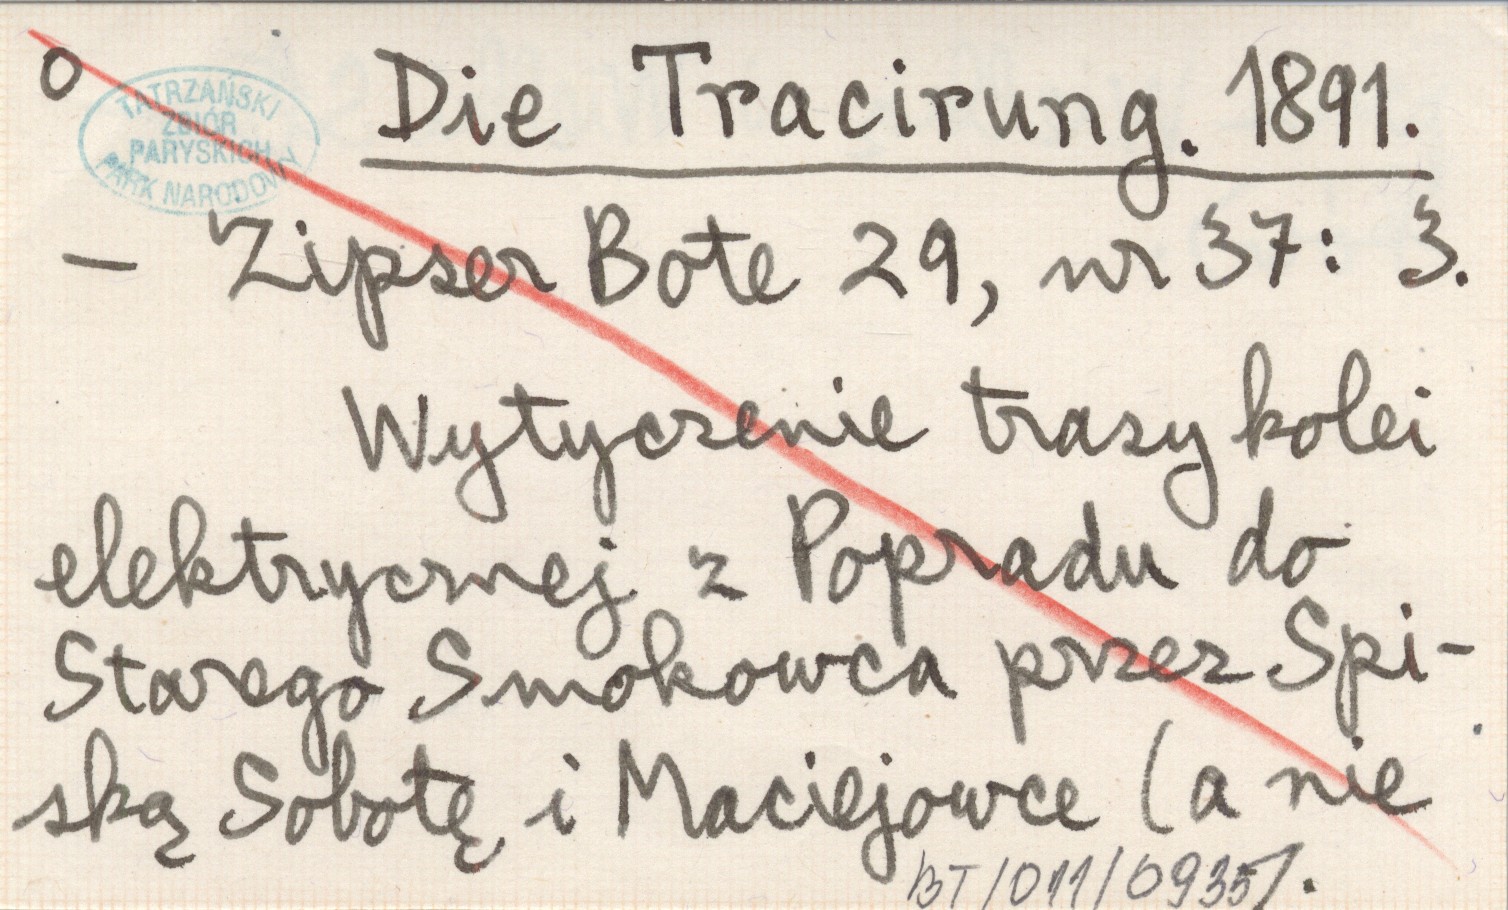 o
TATRZAŃSKI
ZBIÓR
PARYSKICH
PARK NARODOWY
Die Tracirung. 1891.
— Zipser Bote 29, nr 37: 3.
Wytyczenie trasy kolei
elektrycznej z Popradu do
Starego Smokowca przez Spi-
ską Sobotę i Maciejowce (a nie
BT/011/0935/.